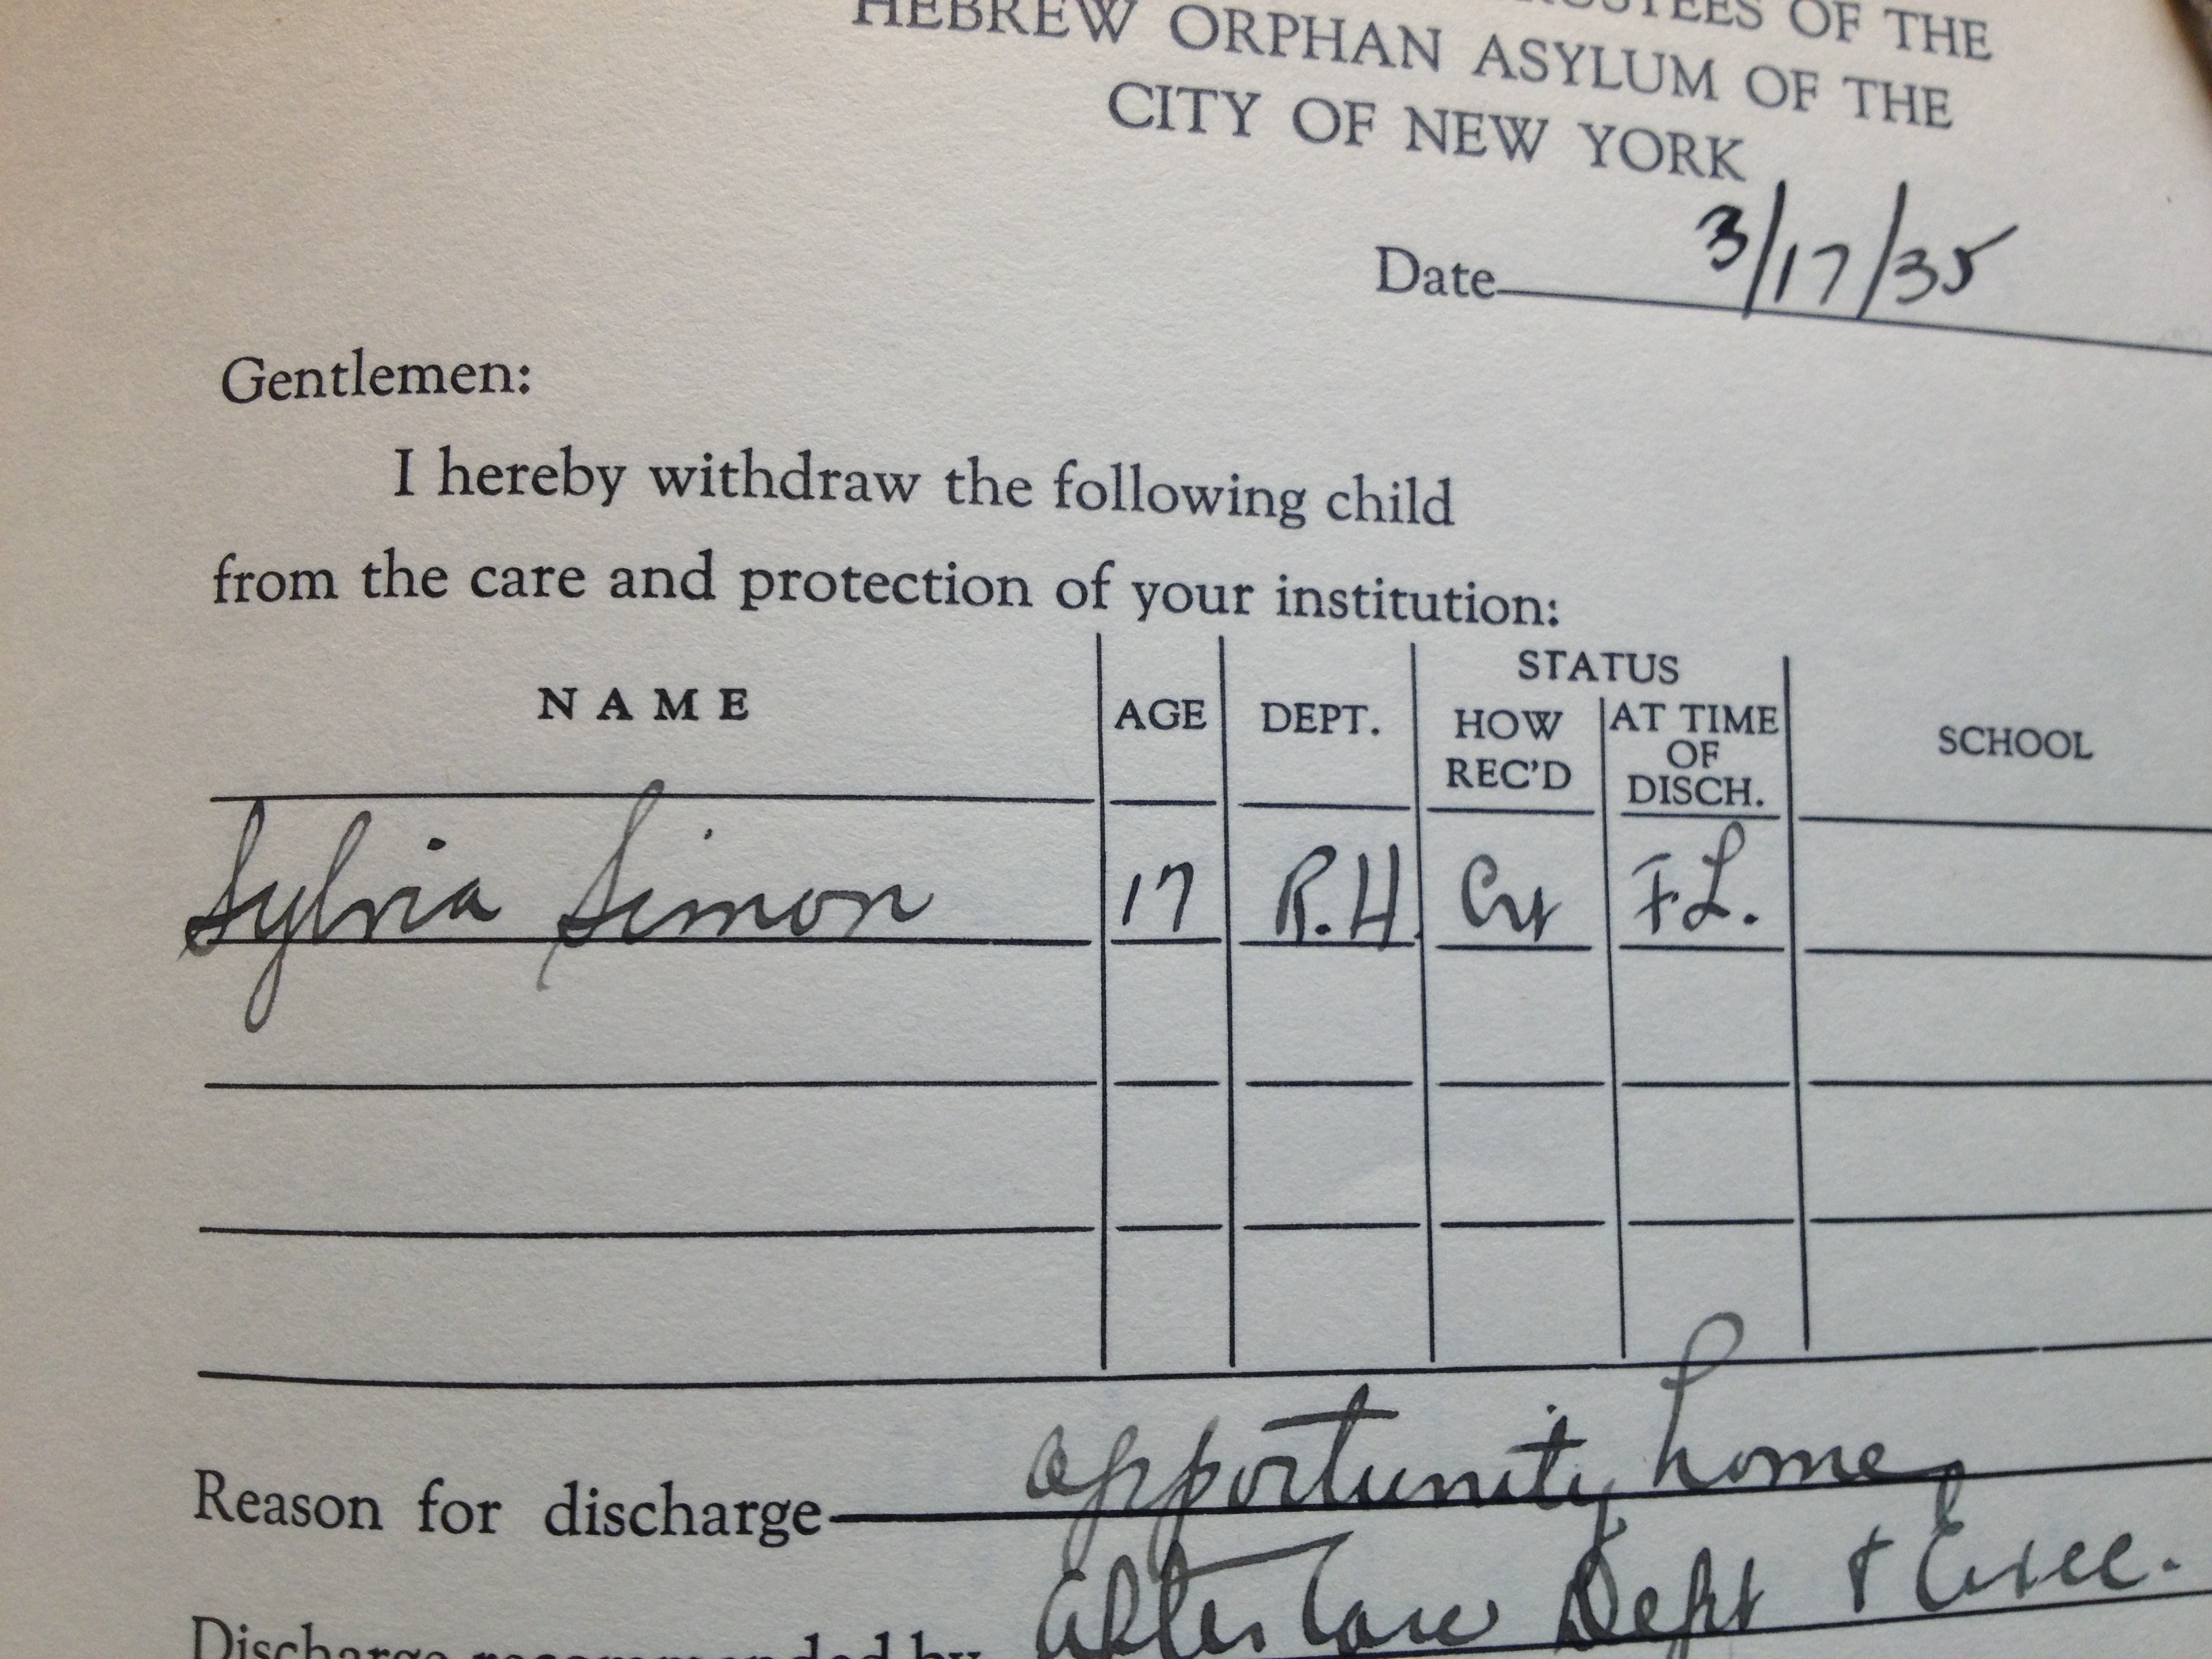 OF THE
HEBREW ORPHAN ASYLUM OF THE
CITY OF NEW YORK
Date 3/17/35
Gentlemen:
I hereby withdraw the following child
from the care and protection of your institution:
NAME AGE DEPT. STATUS HOW REC'D AT TIME OF DISCH. SCHOOL
Sylvia Simon 17 R.H. Crt F.L.
Reason for discharge opportunity home
Discharge recommended by After Care Dept & Exec.